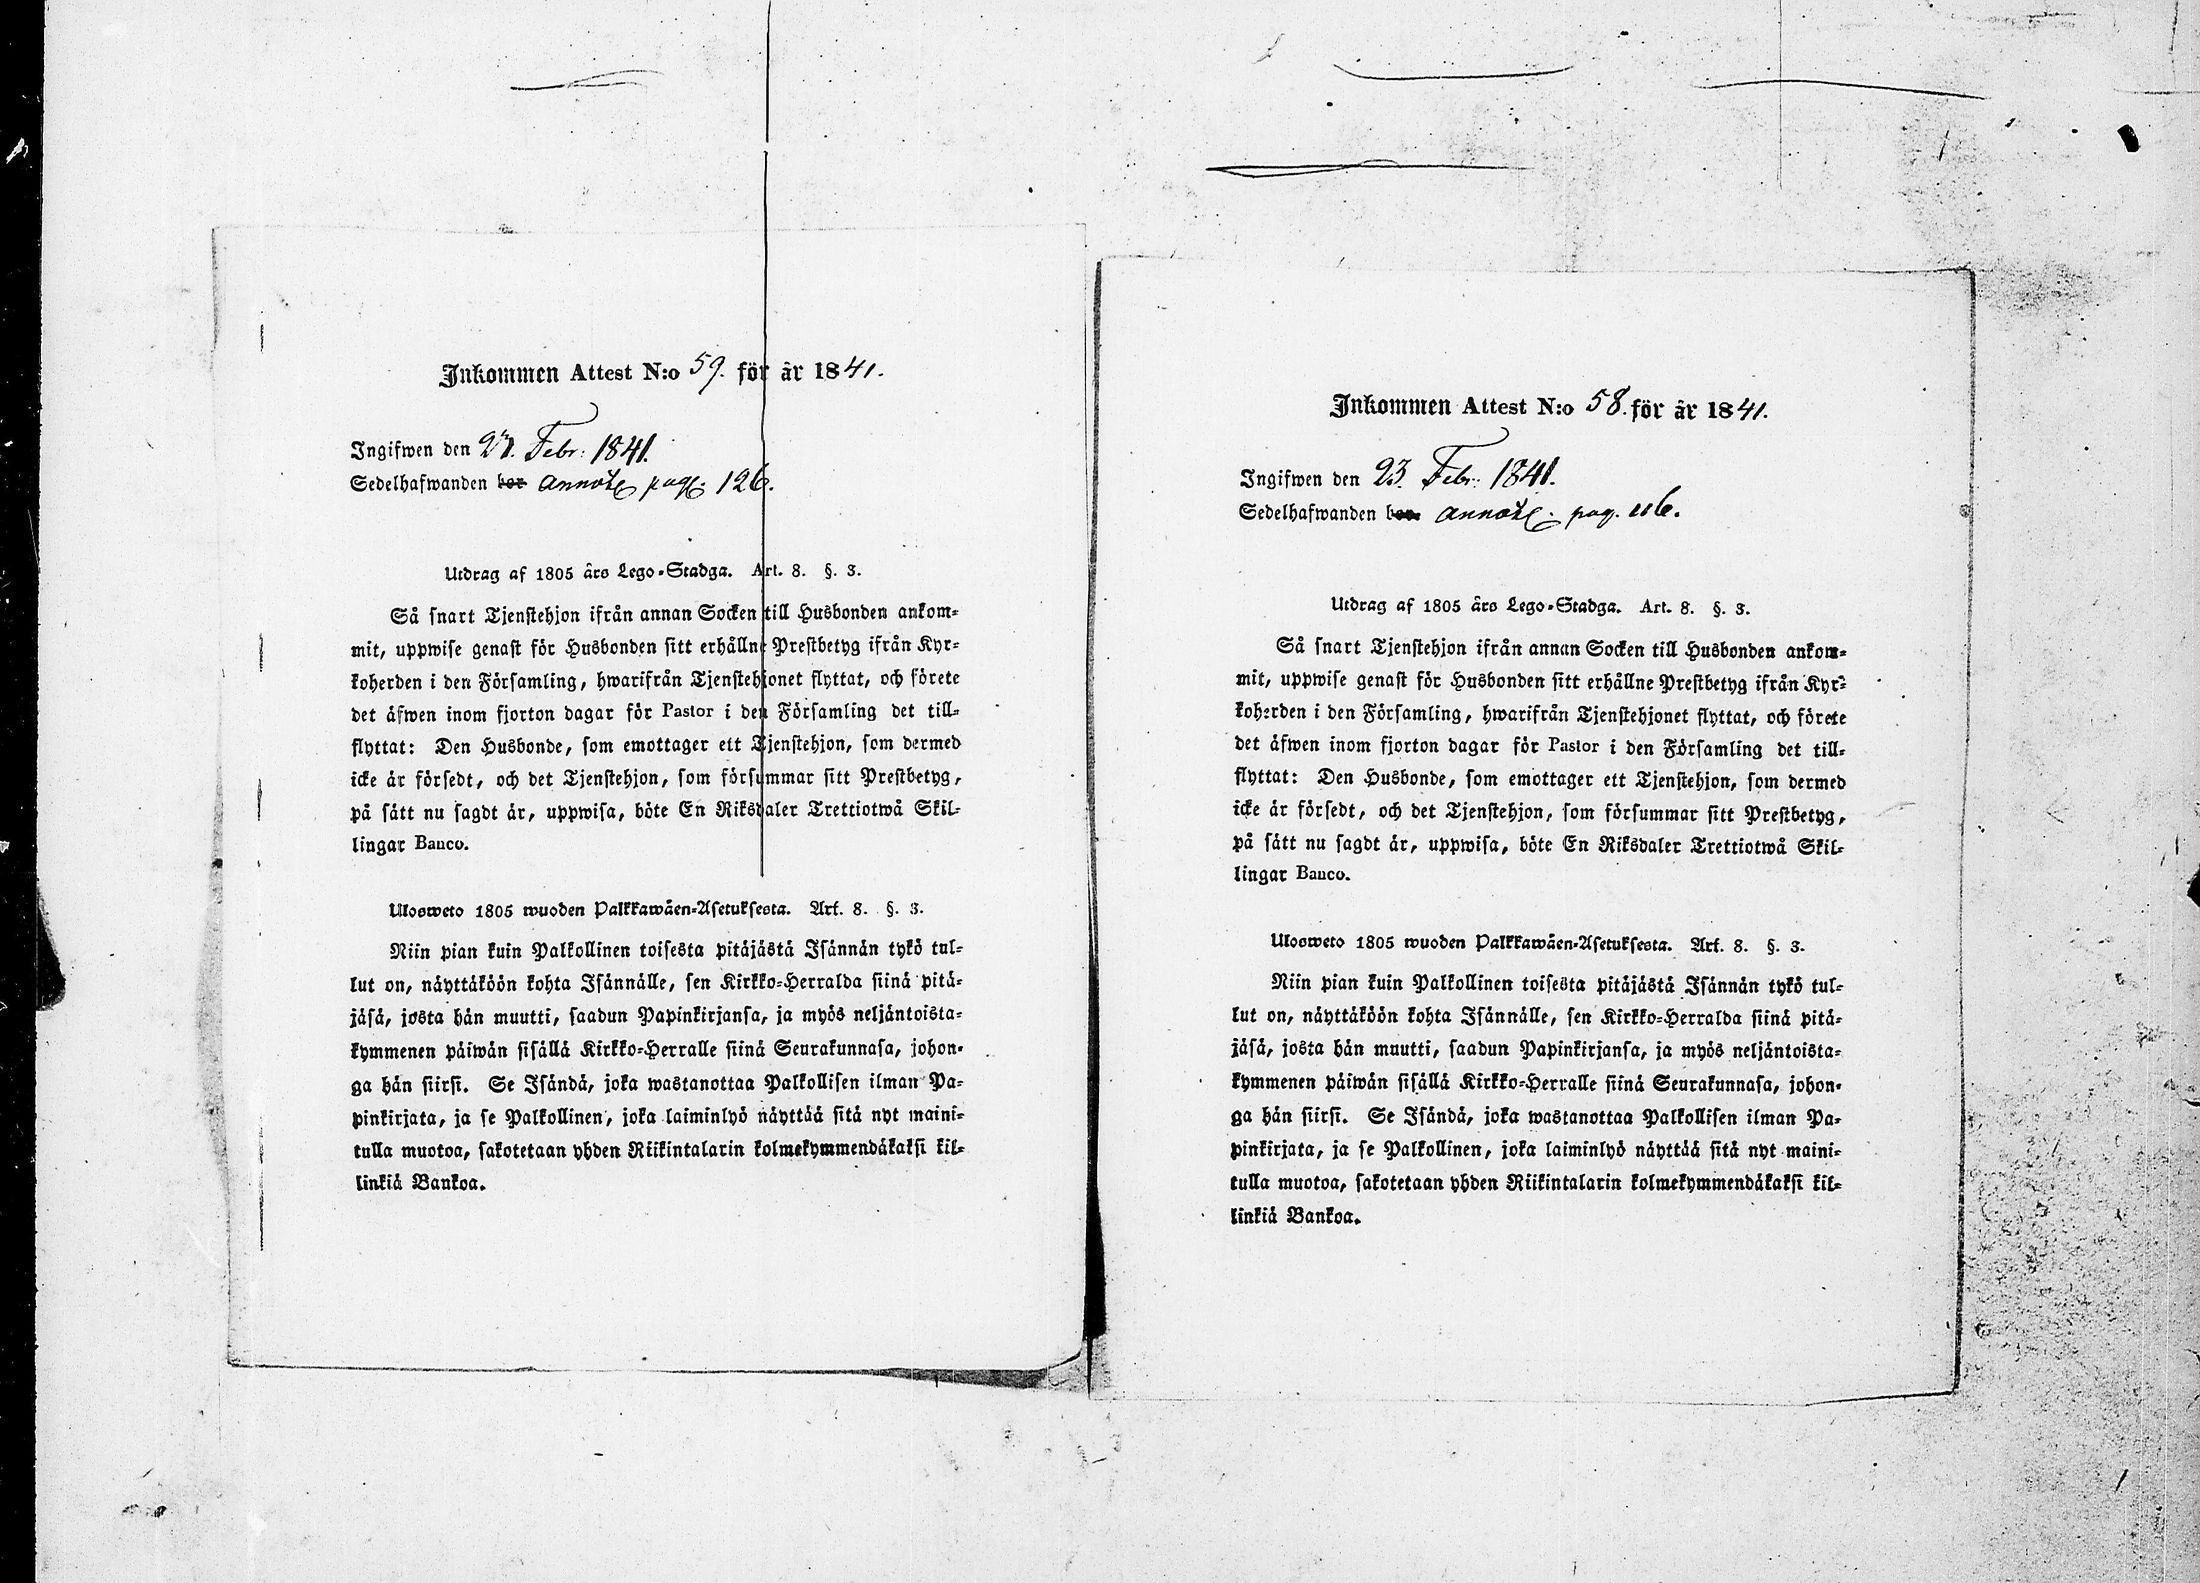 Inkommen Attest N:o 59. för år 1841.
Ingifwen den Febr: 1841.
Sedelhafwanden bor annoteras pag: 126.
Utdrag af 1805 års Lego-Stadga. Art. 8. §. 3.
Så snart Tjenstehjon ifrån annan Socken till Husbonden ankom-
mit, uppwise genast för Husbonden sitt erhållne Prestbetyg ifrån Kyr-
koherden i den Församling, hwarifrån Tjenstehjonet flyttat, och förete
det äfwen inom fjorton dagar för Pastor i den Församling det till-
flyttat: Den Husbonde, som emottager ett Tjenstehjon, som dermed
icke är försedt, och det Tjenstehjon, som försummar sitt Prestbetyg,
på sätt nu sagdt är, uppwisa, böte En Riksdaler Trettiotwå Skil-
lingar Banco.
Ulosweto 1805 wuoden Palkkawäen-Asetuksesta. Art. 8. §. 3.
Niin pian kuin Palkollinen toisesta pitäjästä Isännän tykö tul-
lut on, näyttäköön kohta Isännälle, sen Kirkko-Herralda siinä pitä-
jäsä, josta hän muutti, saadun Papinkirjansa, ja myös neljäntoista-
kymmenen päiwän sisällä Kirkko-Herralle siinä Seurakunnasa, johon-
ga hän siirsi. Se Isändä, joka wastanottaa Palkollisen ilman Pa-
pinkirjata, ja se Palkollinen, joka laiminlyö näyttää sitä nyt maini-
tulla muotoa, sakotetaan yhden Riikintalarin kolmekymmendäkaksi kil-
linkiä Bankoa.
Inkommen Attest N:o 58. för år 1841.
Ingifwen den 23. Febr: 1841.
Sedelhafwanden pag. 116.
Utdrag af 1805 års Lego-Stadga. Art. 8. §. 3.
Så snart Tjenstehjon ifrån annan Socken till Husbonden ankom-
mit, uppwise genast för Husbonden sitt erhållne Prestbetyg ifrån Kyr-
koherden i den Församling, hwarifrån Tjenstehjonet flyttat, och förete
det äfwen inom fjorton dagar för Pastor i den Församling det till-
flyttat: Den Husbonde, som emottager ett Tjenstehjon, som dermed
icke är försedt, och det Tjenstehjon, som försummar sitt Prestbetyg,
på sätt nu sagdt är, uppwisa, böte En Riksdaler Trettiotwå Skil-
lingar Banco.
Ulosweto 1805 wuoden Palkkawäen-Asetuksesta. Art. 8. §. 3.
Niin pian kuin Palkollinen toisesta pitäjästä Isännän tykö tul-
lut on, näyttäköön kohta Isännälle, sen Kirkko-Herralda siinä pitä-
jäsä, josta hän muutti, saadun Papinkirjansa, ja myös neljäntoista-
kymmenen päiwän sisällä Kirkko-Herralle siinä Seurakunnasa, johon-
ga hän siirsi. Se Isändä, joka wastanottaa Palkollisen ilman Pa-
pinkirjata, ja se Palkollinen, joka laiminlyö näyttää sitä nyt maini-
tulla muotoa, sakotetaan yhden Riikintalarin kolmekymmendäkaksi kil-
linkiä Bankoa.